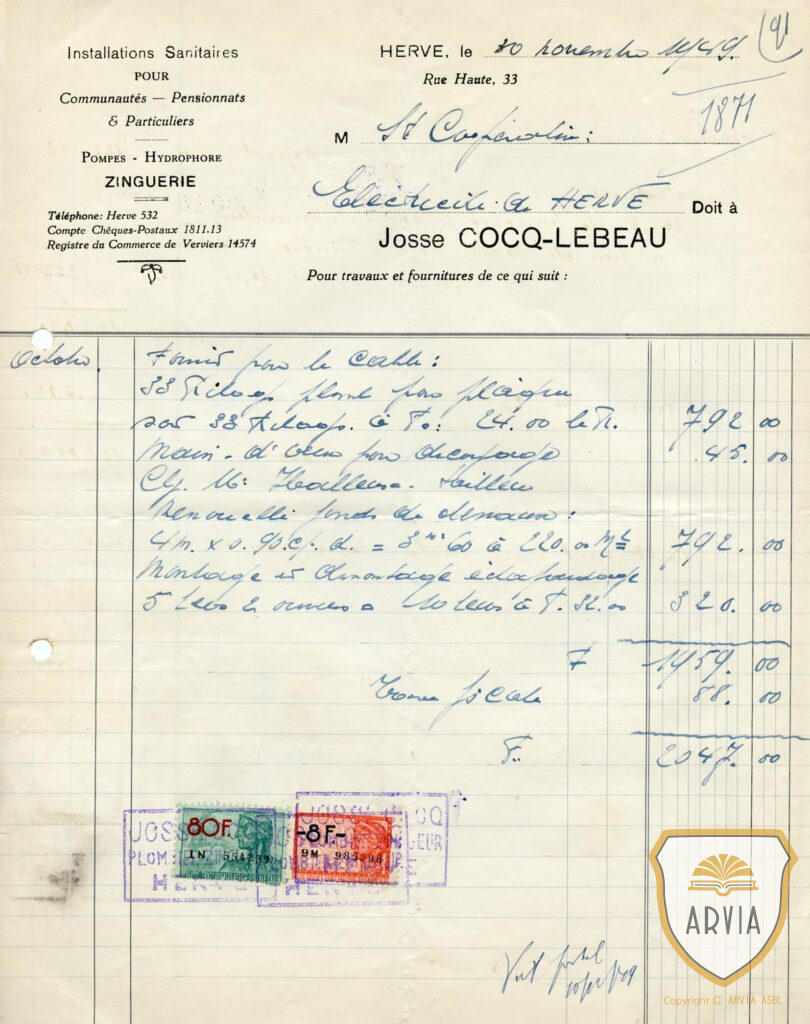 Installations Sanitaires
POUR
Communautés — Pensionnats
& Particuliers
POMPES - HYDROPHORE
ZINGUERIE
Téléphone: Herve 532
Compte Chêques-Postaux 1811.13
Registre du Commerce de Verviers 14574
HERVE, le 30 novembre 1949.
Rue Haute, 33
1871
M St Coopérative:
Electricité de HERVE Doit à
Josse COCQ-LEBEAU
Pour travaux et fournitures de ce qui suit :
Octobre Fournis pour le Cable:
33 Kilogs plomb pour plaques
soit 33 Kilogs. à Fr: 24.00 le K. 792 00
Main-d'œuvre pour 45. 00
Renouvelli fonds de
4 m. x 0.90 = 3 60 à 220.00 792. 00
Montage et démontage échafaudage
5 2 = 10 à F. 32.00 320. 00
F 1959. 00
Taxe fiscale 88. 00
F. 2047. 00
80F
1N 554239
-8F-
9M
JOSSE COCQ
HERVE
ARVIA
Copyright © ARVIA ASBL